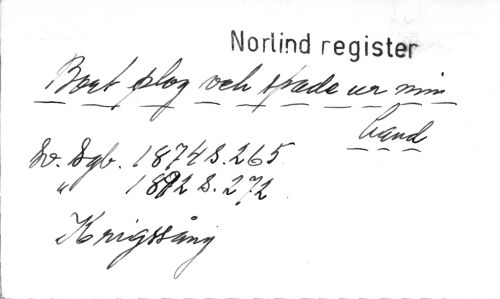 Norlind register
Bort plog och spade ur min
hand
Sv. Sgb. 1874 S. 265
" 1892 S. 272
Krigssång